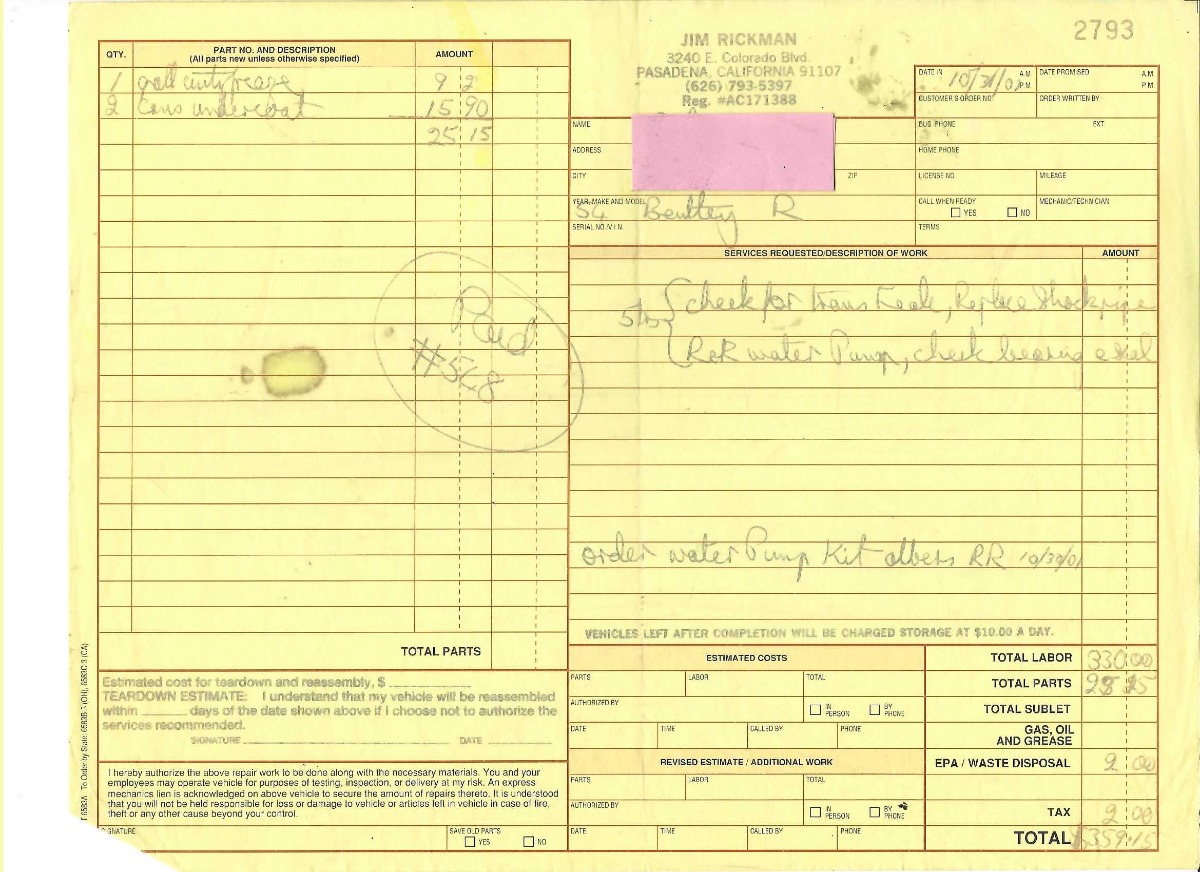 2793
JIM RICKMAN
3240 E. Colorado Blvd.
PASADENA, CALIFORNIA 91107
(626) 793-5397
Reg. #AC171388
QTY. PART NO. AND DESCRIPTION AMOUNT
(All parts new unless otherwise specified)
1 9 2
2 Cans undercoat 15 90
25 15
Paid
#548
DATE IN 10/31/01 A.M. P.M. DATE PROMISED A.M. P.M.
CUSTOMER'S ORDER NO. ORDER WRITTEN BY
NAME BUS. PHONE EXT.
ADDRESS HOME PHONE
CITY ZIP LICENSE NO. MILEAGE
YEAR, MAKE AND MODEL 54 Bentley R CALL WHEN READY YES NO MECHANIC/TECHNICIAN
SERIAL NO./V.I.N. TERMS
SERVICES REQUESTED/DESCRIPTION OF WORK AMOUNT
check for trans leak, Replace Shock pipe
R&R water Pump, check bearing & seal
order water Pump Kit albers RR 10/30/01
VEHICLES LEFT AFTER COMPLETION WILL BE CHARGED STORAGE AT $10.00 A DAY.
TOTAL PARTS
Estimated cost for teardown and reassembly, $
TEARDOWN ESTIMATE: I understand that my vehicle will be reassembled
within days of the date shown above if I choose not to authorize the
services recommended.
SIGNATURE DATE
I hereby authorize the above repair work to be done along with the necessary materials. You and your
employees may operate vehicle for purposes of testing, inspection, or delivery at my risk. An express
mechanics lien is acknowledged on above vehicle to secure the amount of repairs thereto. It is understood
that you will not be held responsible for loss or damage to vehicle or articles left in vehicle in case of fire,
theft or any other cause beyond your control.
SIGNATURE SAVE OLD PARTS YES NO
ESTIMATED COSTS
PARTS LABOR TOTAL
AUTHORIZED BY IN PERSON BY PHONE
DATE TIME CALLED BY PHONE
REVISED ESTIMATE / ADDITIONAL WORK
PARTS LABOR TOTAL
AUTHORIZED BY IN PERSON BY PHONE
DATE TIME CALLED BY PHONE
TOTAL LABOR 330.00
TOTAL PARTS 25 15
TOTAL SUBLET
GAS, OIL
AND GREASE
EPA / WASTE DISPOSAL 2 00
TAX 2 00
TOTAL $359.15